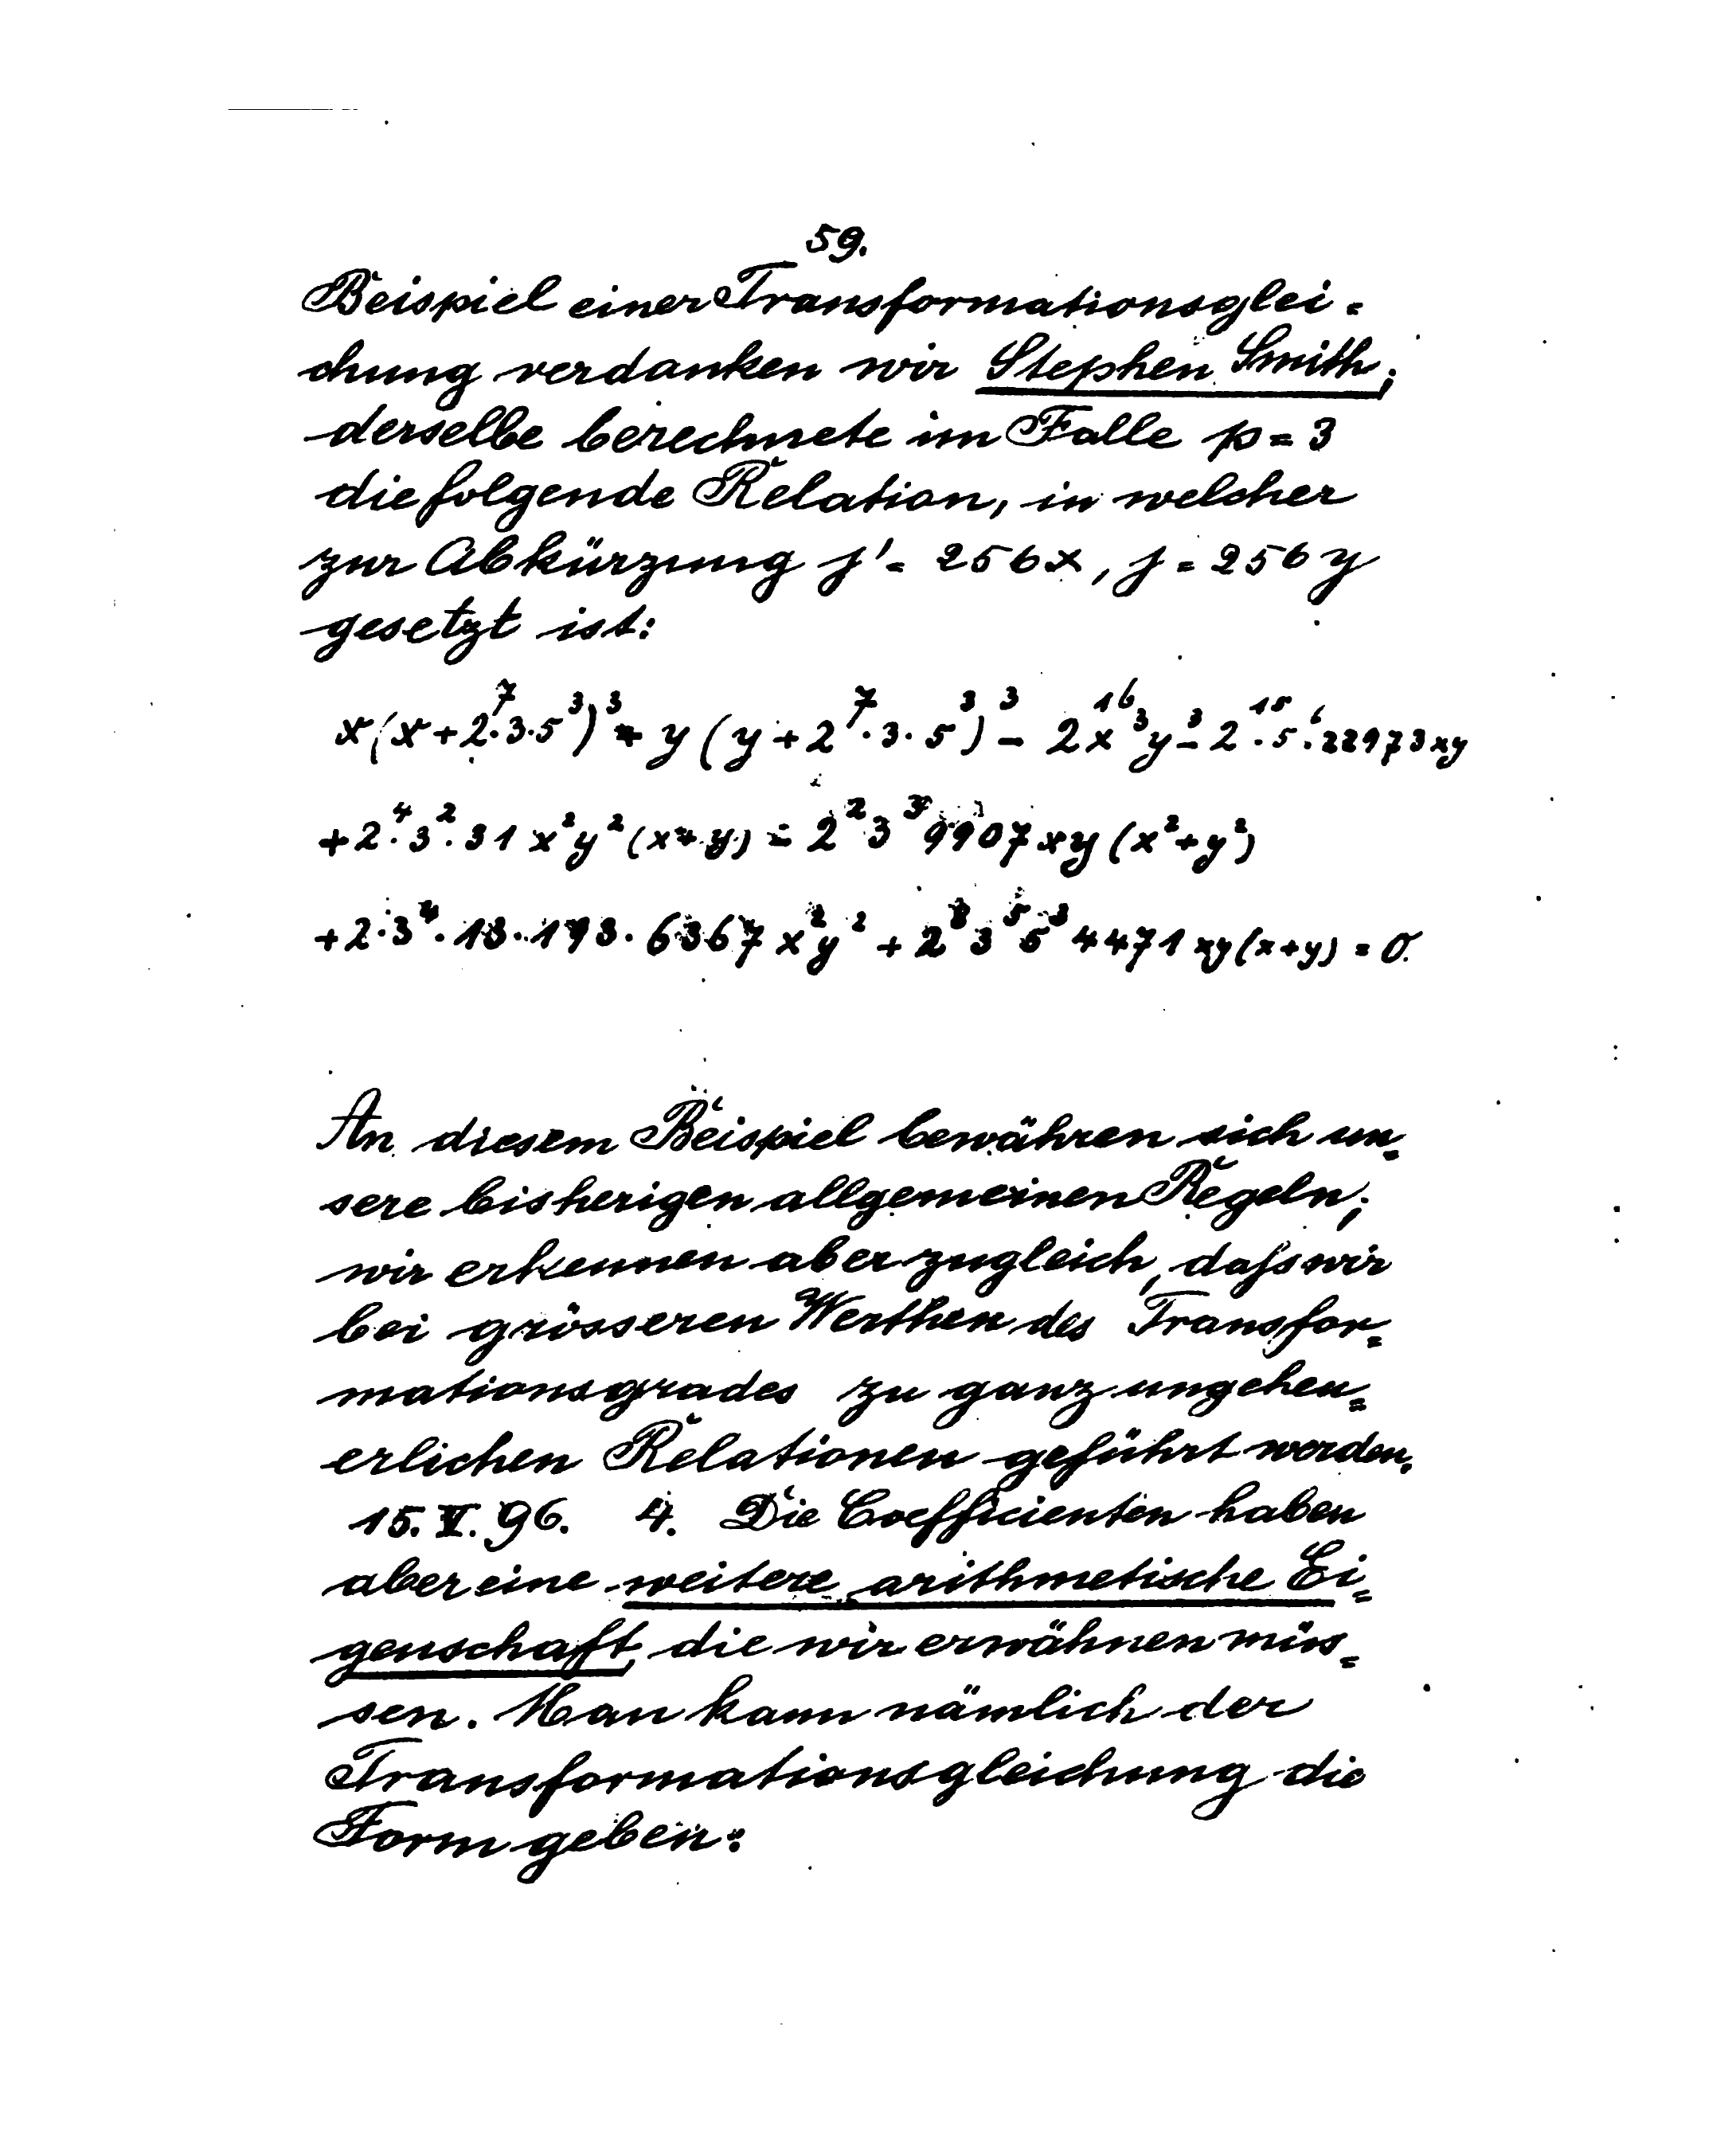 59.
Beispiel einer Transformationsglei=
chung verdanken wir Stephen Smith;
derselbe berechnete im Falle p = 3
die folgende Relation, in welcher
zur Abkürzung j' = 256x, j = 256y
gesetzt ist:
x(x+2⁷·3·5³)³ + y(y+2⁷·3·5³)³ - 2¹⁶x³y³ - 2¹⁵·5⁶·22973xy
+2⁴·3²·31x²y²(x+y) - 2²3³9907xy(x²+y²)
+2·3⁴·13·193·6367x²y² + 2⁸3⁵5³4471xy(x+y) = 0.
An diesem Beispiel bewähren sich un=
sere bisherigen allgemeinen Regeln;
wir erkennen aber zugleich, daſs wir
bei grösseren Werthen des Transfor=
mationsgrades zu ganz ungeheu=
erlichen Relationen geführt werden.
15. V. 96. 4. Die Coefficienten haben
aber eine weitere arithmetische Ei=
genschaft, die wir erwähnen müs=
sen. Man kann nämlich der
Transformationsgleichung die
Form geben: